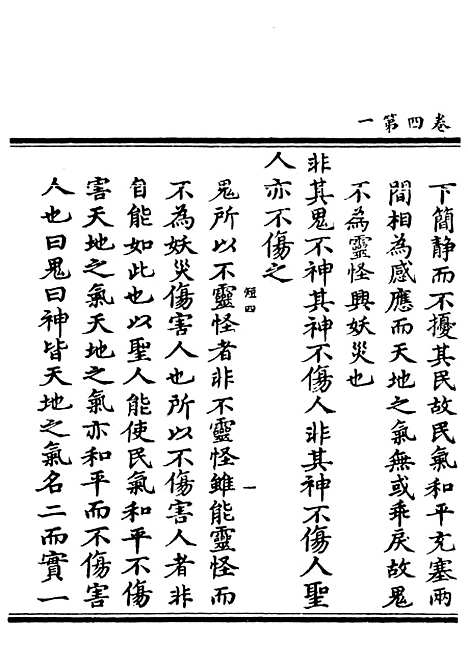 卷四第一
下簡静而不擾其民故民氣和平充塞兩
間相為感應而天地之氣無或乖戾故鬼
不為靈怪興妖災也
非其鬼不神其神不傷人非其神不傷人聖
人亦不傷之
鬼所以不靈怪者非不靈怪雖能靈怪而
不為妖災傷害人也所以不傷害人者非
自能如此也以聖人能使民氣和平不傷
害天地之氣天地之氣亦和平而不傷害
人也曰鬼曰神皆天地之氣名二而實一
短四
一